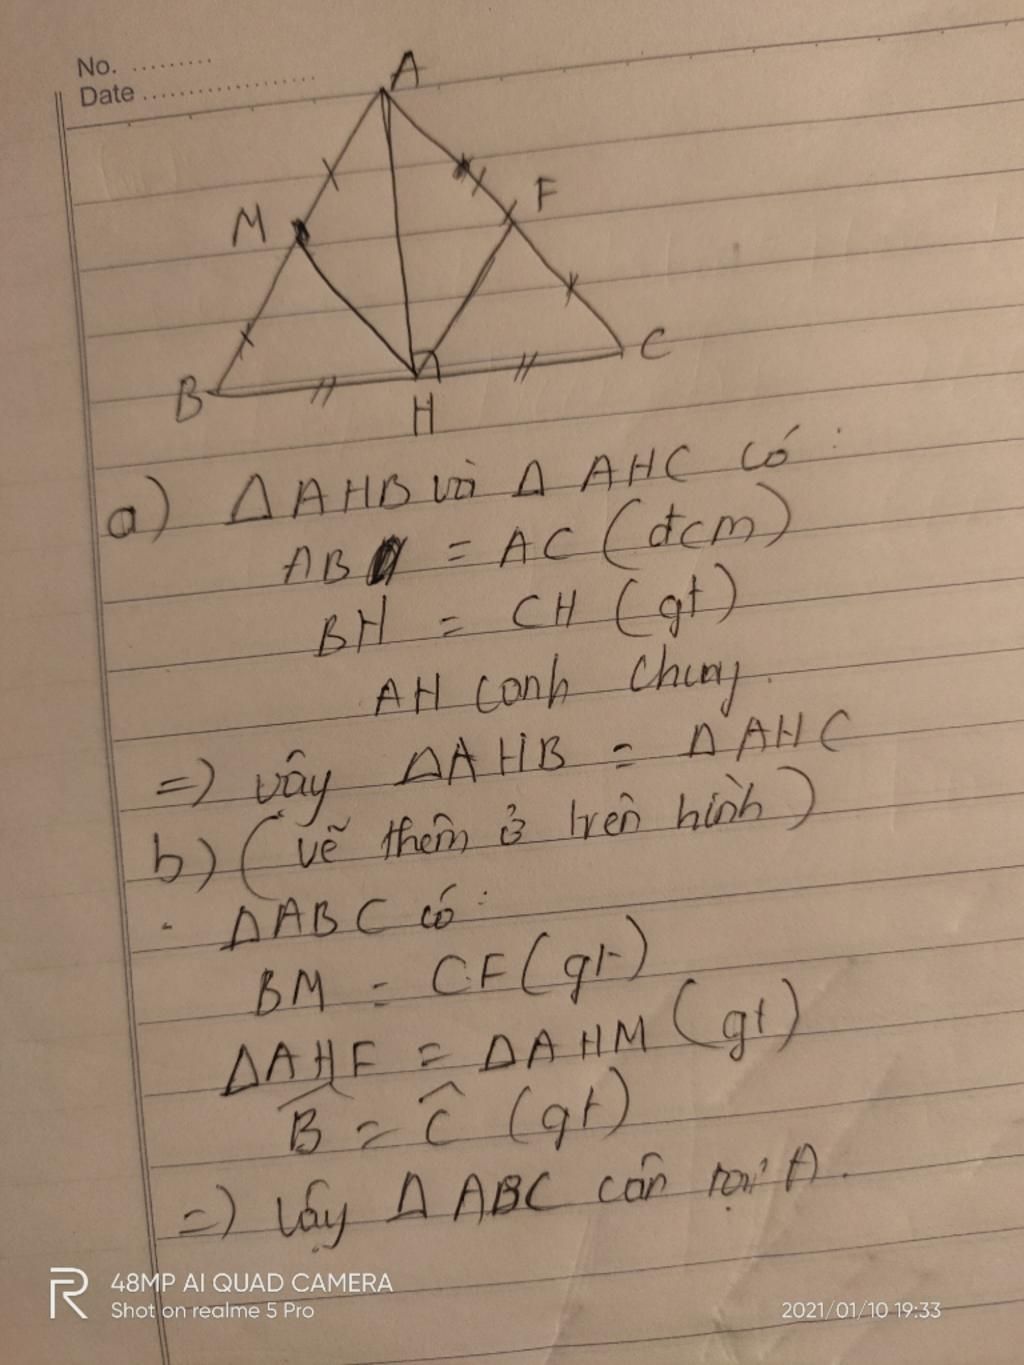 No. .........
Date ....................
A
M
F
B
H
C
a) Δ AHB và Δ AHC có :
AB = AC (đcm)
BH = CH (gt)
AH canh chung.
=) vây ΔAHB = ΔAHC
b) (vẽ thêm ở trên hình)
ΔABC có :
BM = CF (gt)
ΔAHF = ΔAHM (gt)
B̂ = Ĉ (gt)
=) Vậy Δ ABC cân tại A.
48MP AI QUAD CAMERA
Shot on realme 5 Pro
2021/01/10 19:33